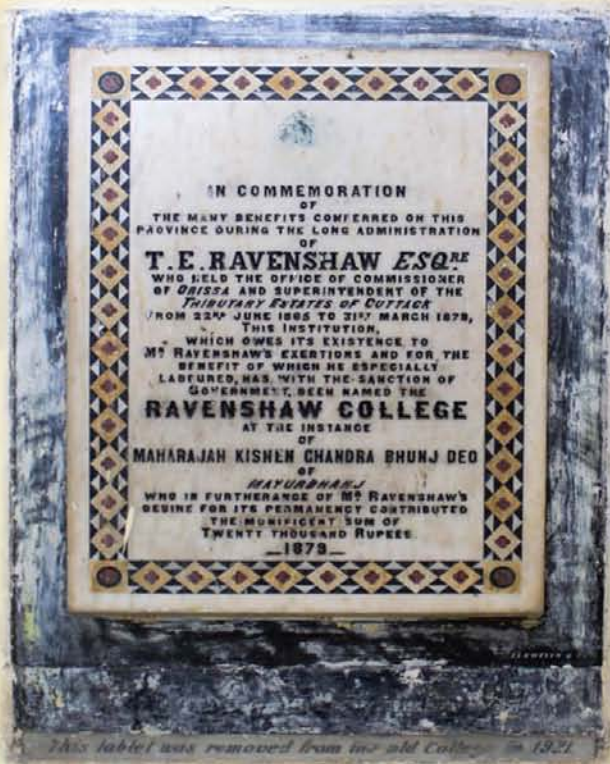 IN COMMEMORATION
OF
THE MANY BENEFITS CONFERRED ON THIS
PROVINCE DURING THE LONG ADMINISTRATION
OF
T.E.RAVENSHAW ESQRE
WHO HELD THE OFFICE OF COMMISSIONER
OF ORISSA AND SUPERINTENDENT OF THE
TRIBUTARY ESTATES OF CUTTACK
FROM 22ND JUNE 1865 TO 31ST MARCH 1878,
THIS INSTITUTION,
WHICH OWES ITS EXISTENCE TO
MR RAVENSHAW'S EXERTIONS AND FOR THE
BENEFIT OF WHICH HE ESPECIALLY
LABOURED, HAS WITH THE SANCTION OF
GOVERNMENT, BEEN NAMED THE
RAVENSHAW COLLEGE
AT THE INSTANCE
OF
MAHARAJAH KISHEN CHANDRA BHUNJ DEO
OF
MAYURBHANJ
WHO IN FURTHERANCE OF MR RAVENSHAW'S
DESIRE FOR ITS PERMANENCY CONTRIBUTED
THE MUNIFICENT SUM OF
TWENTY THOUSAND RUPEES
1879
This tablet was removed from the old College in 1921.